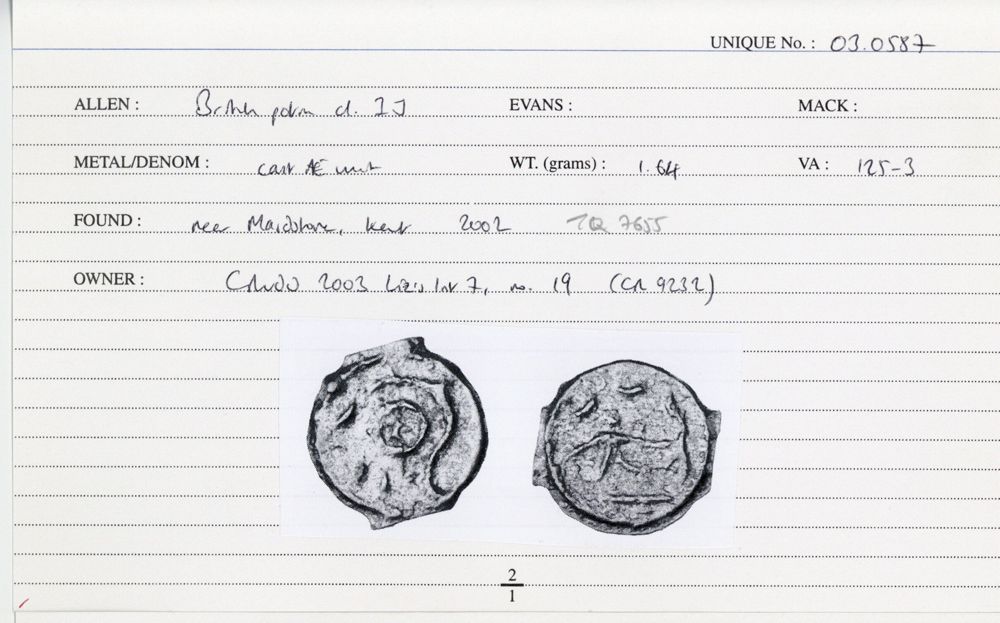 UNIQUE No. : 03.0587
ALLEN : British potin cl. IJ EVANS : MACK :
METAL/DENOM : cast AE unit WT. (grams) : 1.64 VA : 125-3
FOUND : near Maidstone, Kent 2002 TQ 7655
OWNER : 2003 7, no. 19 (CR 9232)
2
1